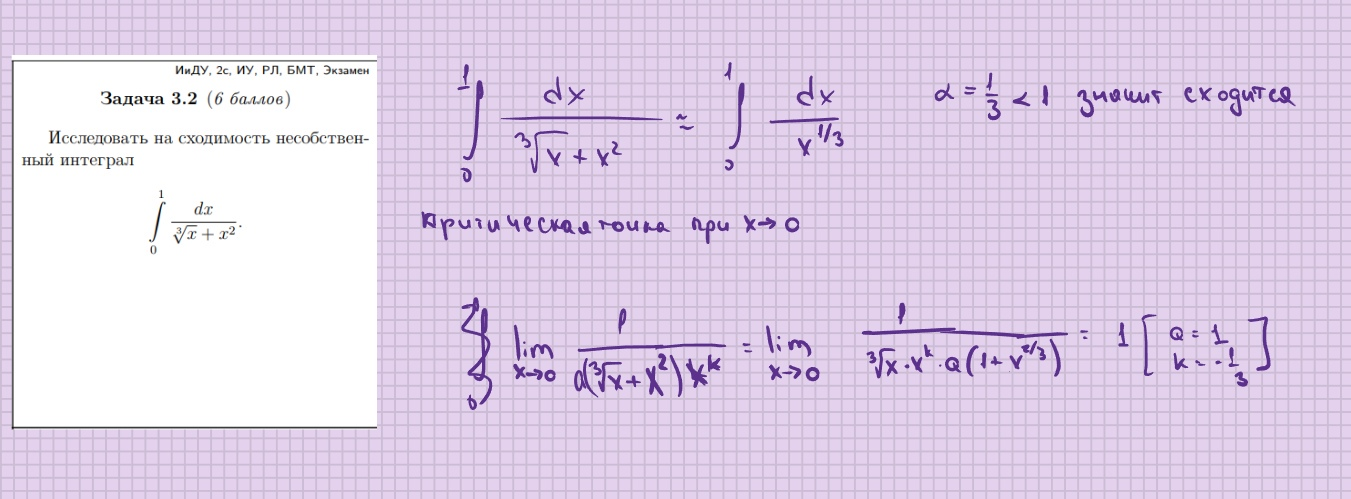 ИиДУ, 2с, ИУ, РЛ, БМТ, Экзамен
Задача 3.2 (6 баллов)
Исследовать на сходимость несобствен-
ный интеграл
∫₀¹ dx / (∛x + x²).
∫₀¹ dx / (∛x + x²) ≈ ∫₀¹ dx / x^(1/3)   α = 1/3 < 1 значит сходится
Критическая точка при x→0
lim x→0 1 / (a(∛x + x²) x^k) = lim x→0 1 / (∛x · x^k · a(1 + x^(2/3))) = 1 [a = 1
k = -1/3]